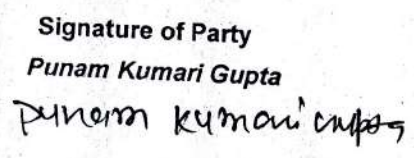 Signature of Party
Punam Kumari Gupta
Punam Kumari Gupta